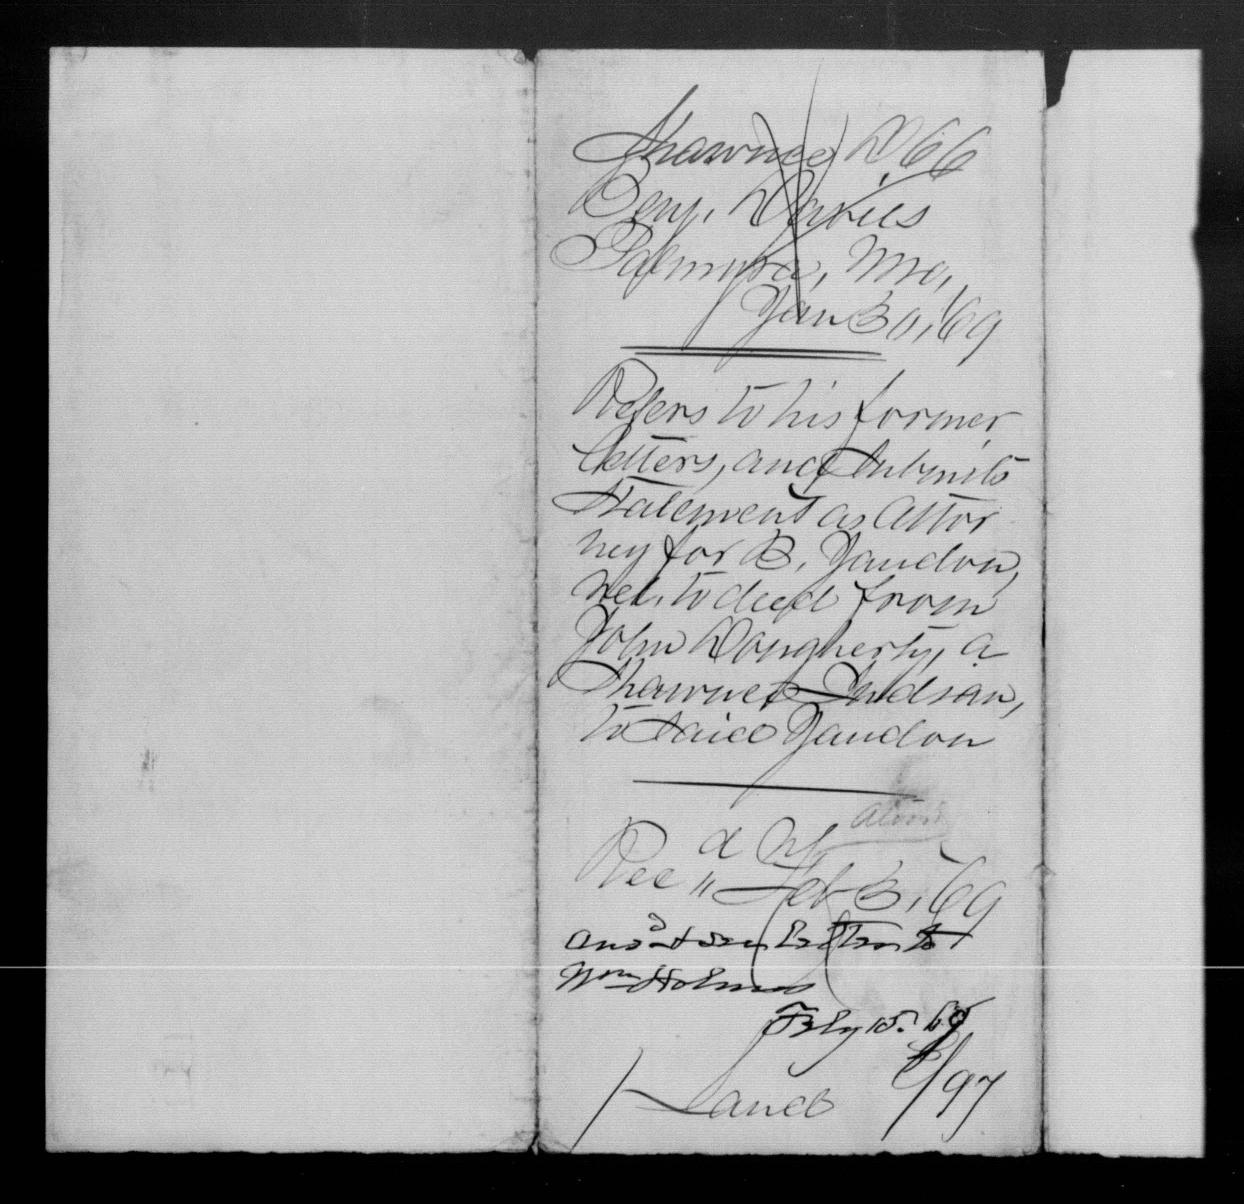 Shawnee D. 66
Benj. Davies
Palmyra, Mo.,
Jan 30, '69
Refers to his former
letters, and submits
statement as Attor
ney for B. Jaudon,
rel. to deed from
John Dougherty, a
Shawnee Indian,
to said Jaudon
Rec'd Feb 3, '69
Ans'd see letter to
Wm Holmes
Feby 15. 69
Land 97